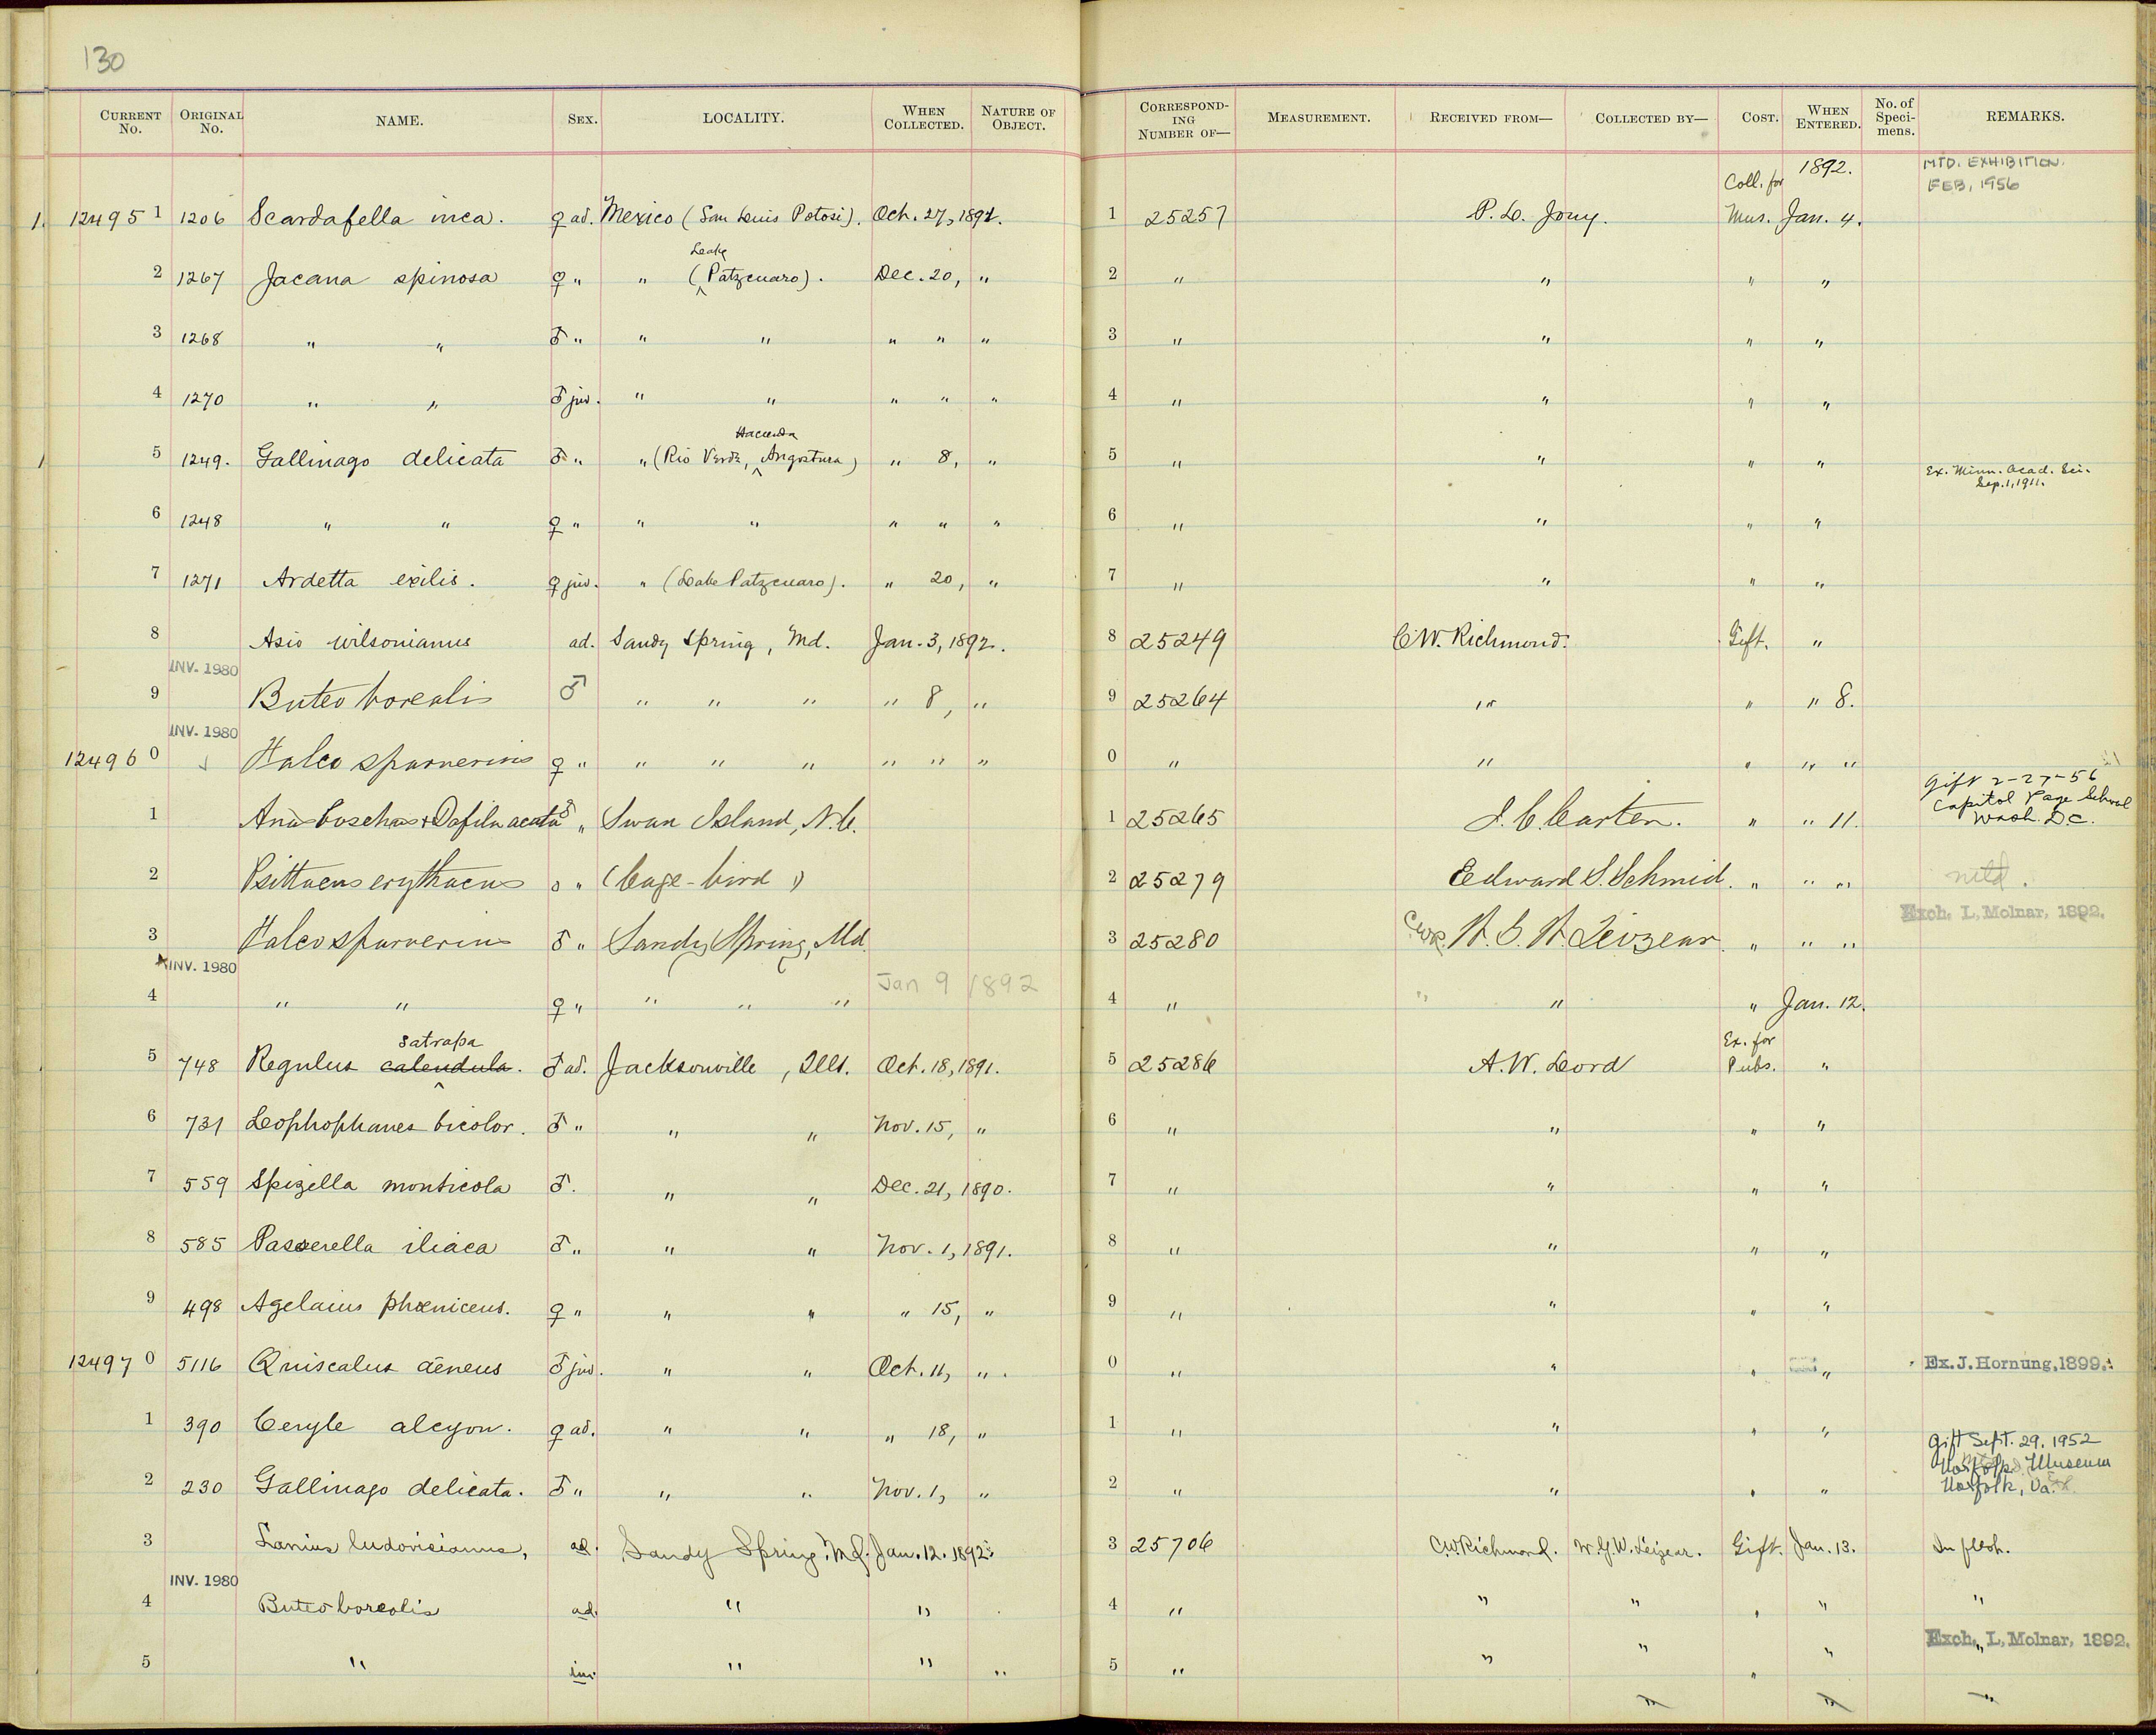 130
CURRENT No. ORIGINAL No. NAME. SEX. LOCALITY. WHEN COLLECTED. NATURE OF OBJECT. CORRESPOND-ING NUMBER OF— MEASUREMENT. RECEIVED FROM— COLLECTED BY— COST. WHEN ENTERED. No. of Speci-mens. REMARKS.
Coll. for 1892. MTD. EXHIBITION. FEB, 1956
1. 12495 1 1206 Scardafella inca. ♀ ad. Mexico (San Luis Potosi). Oct. 27, 1891. 1 25257 P. L. Jouy. Mus. Jan. 4.
Lake
2 1267 Jacana spinosa ♀ " " (^Patzcuaro). Dec. 20, " 2 " " " "
3 1268 " " ♂ " " " " " " 3 " " " "
4 1270 " " ♂ juv. " " " " " 4 " " " "
Hacienda
1 5 1249. Gallinago delicata ♂ " " (Rio Verde, ^Angostura) " 8, " 5 " " " " Ex. Minn. Acad. Sci. Sep. 1, 1911.
6 1248 " " ♀ " " " " " " 6 " " " "
7 1271 Ardetta exilis. ♀ juv. " (Lake Patzcuaro). " 20, " 7 " " " "
8 Asio wilsonianus ad. Sandy Spring, Md. Jan. 3, 1892. 8 25249 C W. Richmond. Gift. "
INV. 1980
9 Buteo borealis ♂ " " " " 8, " 9 25264 " " " 8.
INV. 1980
12496 0 Falco sparverius ♀ " " " " " " " 0 " " " " "
1 Anas boschas + Dafila acuta ♂ " Swan Island, N.C. 1 25265 J. C. Carten. " " 11. Gift 2-27-56 Capitol Page School Wash. D.C.
2 Psittacus erythacus ♂ " (Cage-bird) 2 25279 Edward S. Schmid. " " " mtd.
Exch. L, Molnar, 1892.
3 Falco sparverius ♂ " Sandy Spring, Md. 3 25280 CWR. W. G. W. Leizear. " " "
INV. 1980
4 " " ♀ " " " " Jan 9 1892 4 " " " " Jan. 12.
satrapa Ex. for
5 748 Regulus calendula. ♂ ad. Jacksonville, Ills. Oct. 18, 1891. 5 25286 A. W. Lord Pubs. "
6 731 Lophophanes bicolor. ♂ " " " Nov. 15, " 6 " " " "
7 559 Spizella monticola ♂. " " Dec. 21, 1890. 7 " " " "
8 585 Passerella iliaca ♂ " " " Nov. 1, 1891. 8 " " " "
9 498 Agelaius phœniceus. ♀ " " " " 15, " 9 " " " "
12497 0 5116 Quiscalus aëneus ♂ juv. " " Oct. 11, ". 0 " " " " Ex. J. Hornung, 1899.
1 390 Ceryle alcyon. ♀ ad. " " " 18, " 1 " " " "
2 230 Gallinago delicata. ♂ " " " Nov. 1, " 2 " " " " Gift Sept. 29, 1952 Norfolk Museum Norfolk, Va.
3 Lanius ludovicianus, ad. Sandy Spring, Md. Jan. 12. 1892. 3 25706 C.W. Richmond. W. G. W. Leizear. Gift. Jan. 13. In flesh.
INV. 1980
4 Buteo borealis ad. " " 4 " " " " " "
Exch. L, Molnar, 1892.
5 " im. " " " 5 " " " " " "
" " "